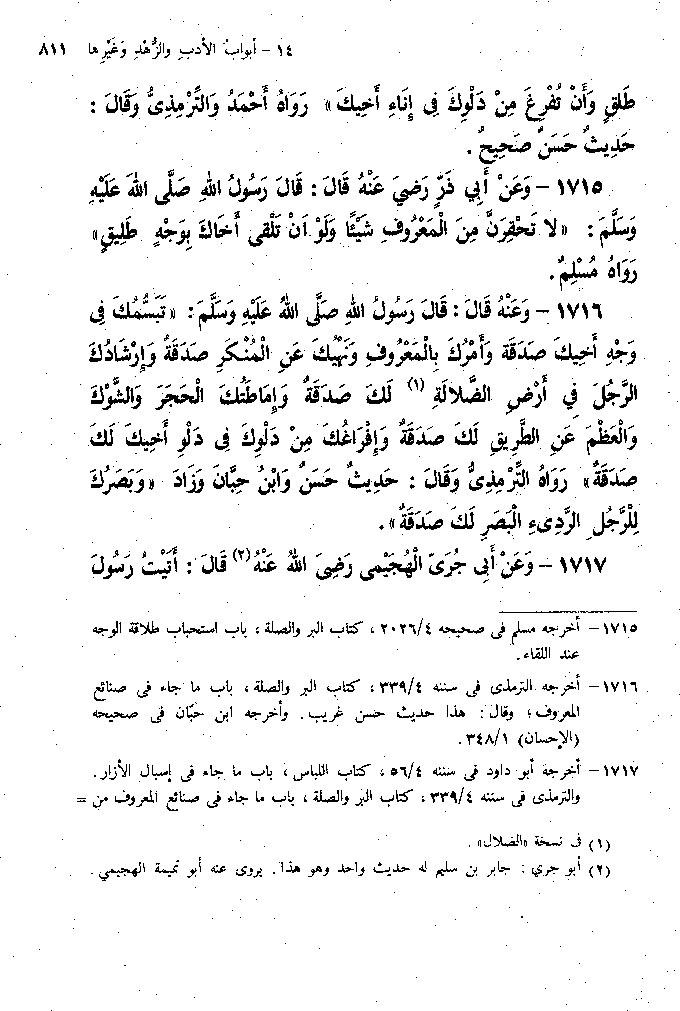 ١٤ - أبوابُ الأدبِ والزُّهْدِ وَغَيْرِها ٨١١
طَلقٍ وَأَنْ تُفْرِغَ مِنْ دَلْوِكَ فِى إِنَاءِ أَخِيكَ» رَوَاهُ أَحْمَدُ وَالتِّرْمِذِىُّ وَقَالَ :
حَدِيثٌ حَسَنٌ صَحِيحٌ .
١٧١٥ - وَعَنْ أَبِي ذَرٍّ رَضِيَ عَنْهُ قَالَ : قَالَ رَسُولُ اللهِ صَلَّى اللهُ عَلَيْهِ
وَسَلَّمَ : «لا تَحْقِرَنَّ مِنَ الْمَعْرُوفِ شَيْئًا وَلَوْ اَنْ تَلْقى أَخَاكَ بِوَجْهٍ طَلِيقٍ»
رَوَاهُ مُسْلِمٌ .
١٧١٦ - وَعَنْهُ قَالَ : قَالَ رَسُولُ اللهِ صَلَّى اللهُ عَلَيْهِ وَسَلَّمَ : «تَبَسُّمُكَ فِى
وَجْهِ أَخِيكَ صَدَقَة وَأَمْرُكَ بِالْمَعْرُوفِ وَنَهْيُكَ عَنِ الْمُنْكَرِ صَدَقَةٌ وَإِرْشَادُكَ
الرَّجُلَ فِي أَرْضِ الضَّلالَةِ (١) لَكَ صَدَقَةٌ وَإِمَاطَتُكَ الْحَجَرَ وَالشَّوْكَ
وَالْعَظْمَ عَنِ الطَّرِيقِ لَكَ صَدَقَةٌ وَإِفْرَاغُكَ مِنْ دَلْوِكَ فِى دَلْوِ أَخِيكَ لَكَ
صَدَقَةٌ» رَوَاهُ التِّرْمِذِىُّ وَقَالَ : حَدِيثٌ حَسَنٌ وَابْنُ حِبَّانَ وَزَادَ «وَبَصَرُكَ
لِلرَّجُلِ الرَّدِىءِ الْبَصَرِ لَكَ صَدَقَةٌ» .
١٧١٧ - وَعَنْ أَبِى جُرَىّ الْهُجَيْمِى رَضِىَ اللهُ عَنْهُ (٢) قَالَ : أَتَيْتُ رَسُولَ
١٧١٥ - أخرجه مسلم فى صحيحه ٢٠٢٦/٤ ، كتاب البر والصلة ، باب استحباب طلاقة الوجه
عند اللقاء .
١٧١٦ - أخرجه الترمذى فى سننه ٣٣٩/٤ ، كتاب البر والصلة ، باب ما جاء فى صنائع
المعروف ، وقال : هذا حديث حسن غريب . وأخرجه ابن حبّان فى صحيحه
(الإحسان) ٣٤٨/١ .
١٧١٧ - أخرجه أبو داود فى سننه ٥٦/٤ ، كتاب اللباس ، باب ما جاء فى إسبال الأزار .
والترمذى فى سننه ٣٣٩/٤ ، كتاب البر والصلة ، باب ما جاء فى صنائع المعروف من =
(١) فى نسخة «الضلال» .
(٢) أبو جري : جابر بن سليم له حديث واحد وهو هذا . يروى عنه أبو تميمة الهجيمي .